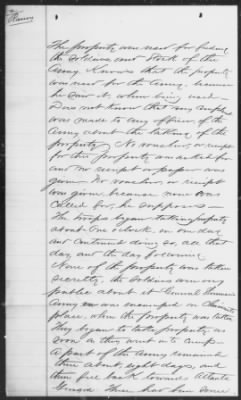 The property was used for feeding
the soldiers and stock of the
Army. Knows that the property
was used for the Army, because
he saw it, when being used—
Does not know that any complaint
was made to any officer of the
Army about the taking of the
property. No voucher, or receipt
for this property was asked for
and no receipt or paper was
given. No voucher, or receipt
was given, because none was
called for, he supposes—
The troops began taking property
about One o'clock on one day
and continued doing so, all that
day and the day following
None of the property was taken
secretly, the soldiers were very
public about it General
Army was encamped on
place, when the property was taken
They began to take property as
soon as they went into camp—
A part of the Army remained
there about eight days, and
then fell back towards Atlanta
Georgia There had been some